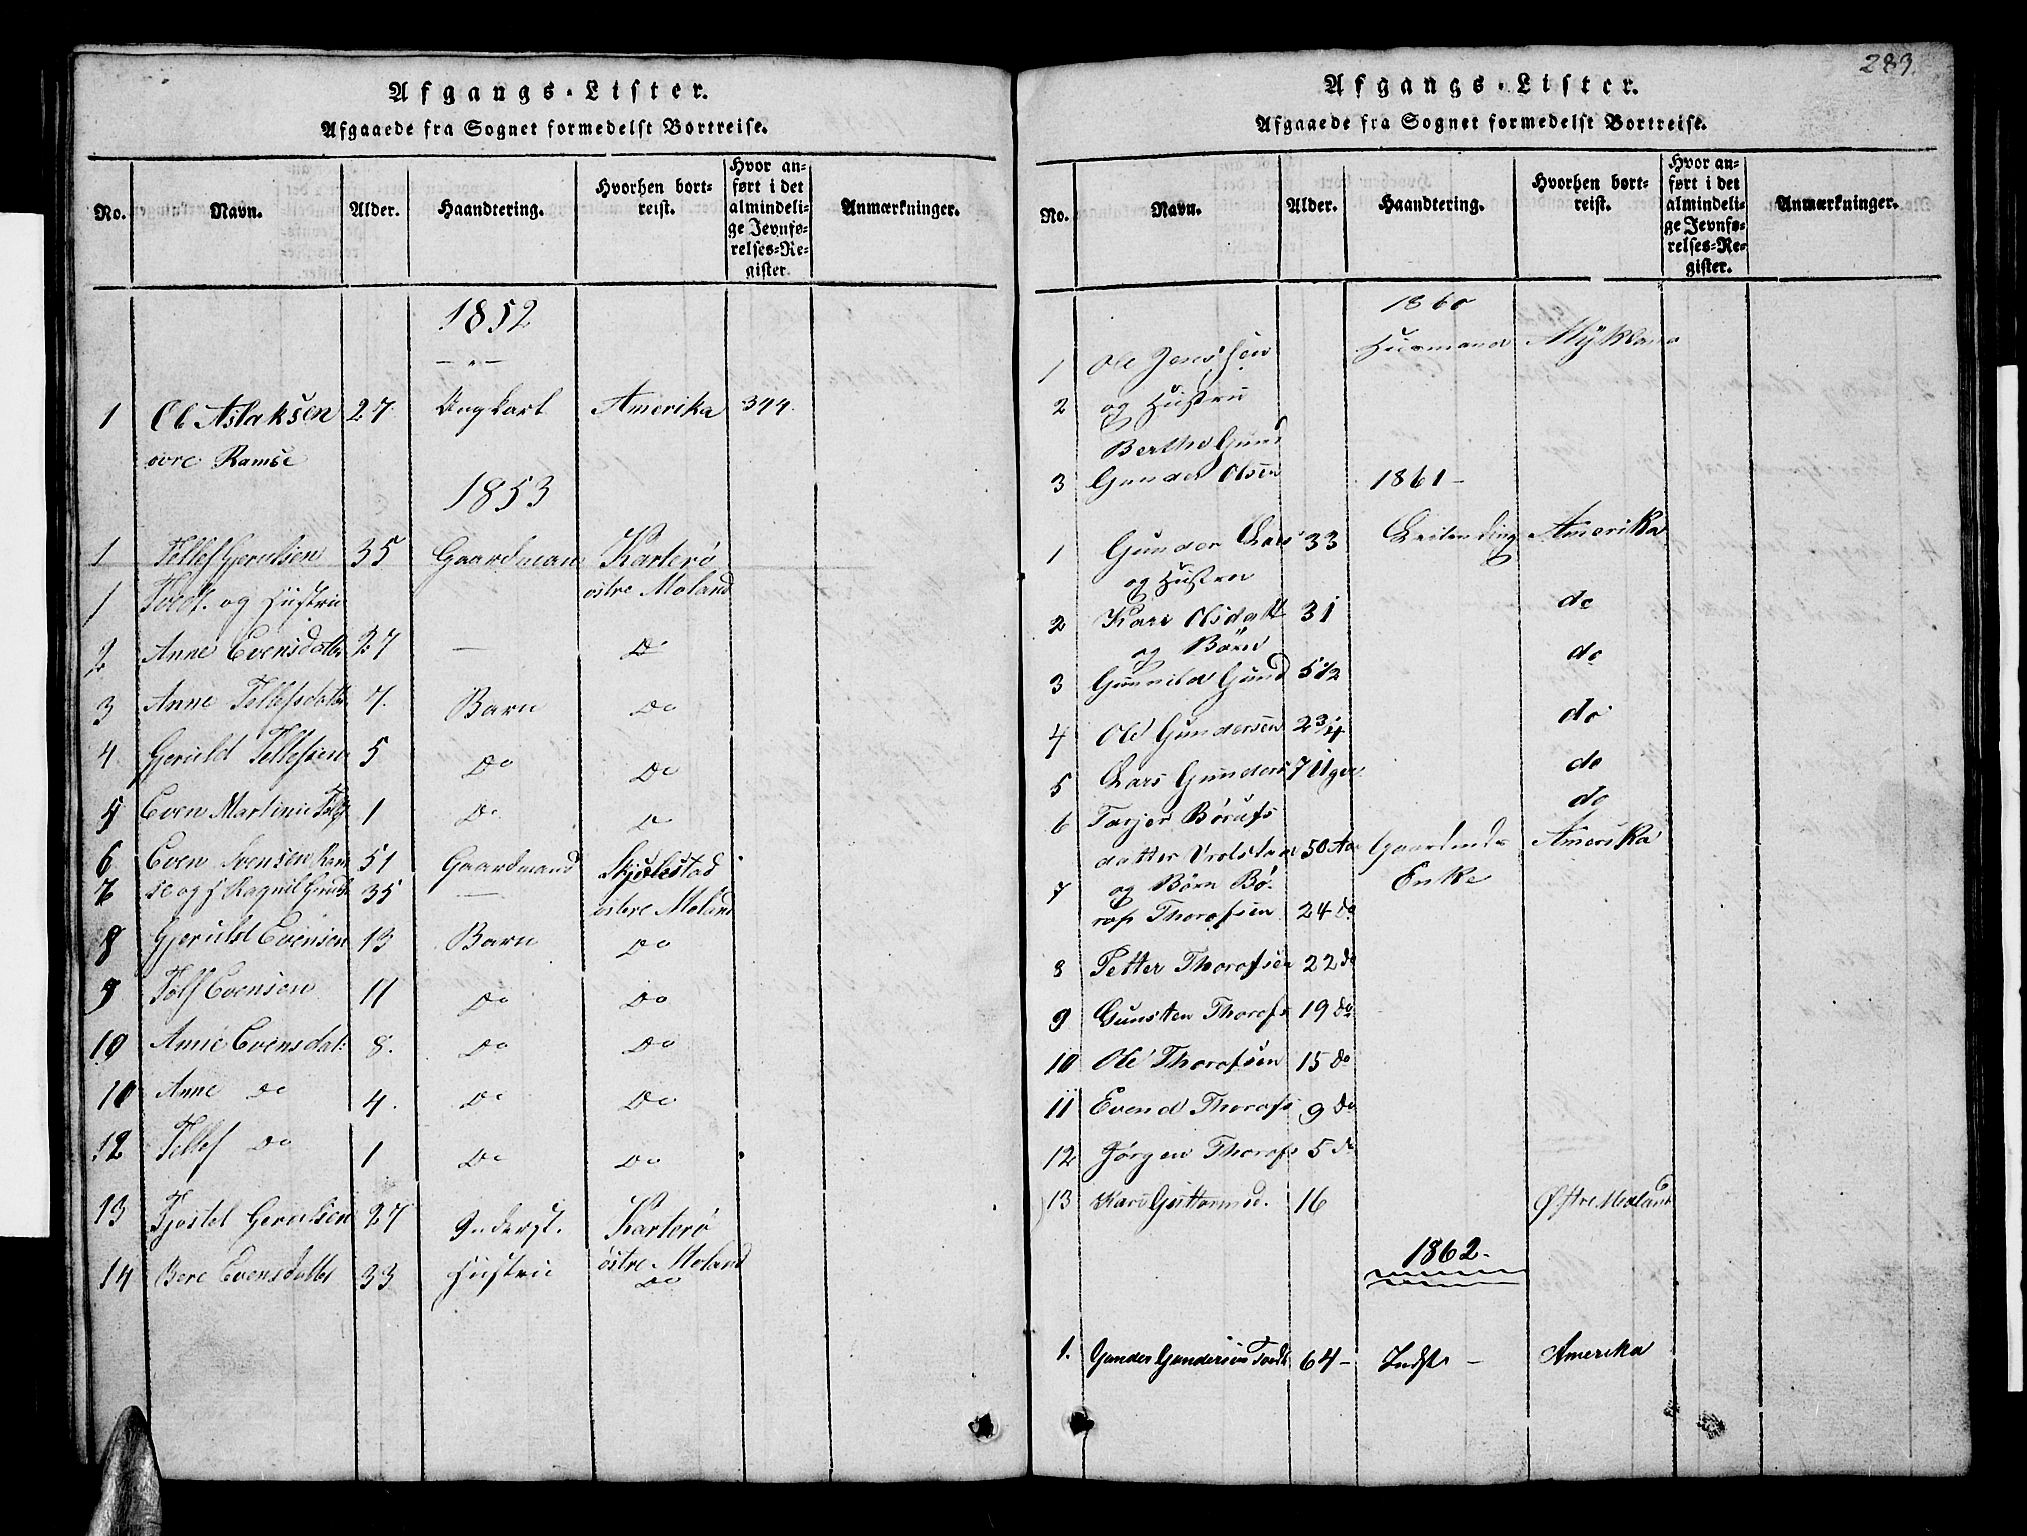 Afgangs-Lister.
Afgaaede fra Sognet formedelst Bortreise.
No. Navn. Alder. Haandtering. Hvorhen bortreist. Hvor anført i det almindelige Jevnførelses-Register. Anmærkninger.
1852
1 Ole Aslaksen 27 Ungkarl Amerika 344.
øvre Ramse
1853
1 Tellef Gerulsen 35 Gaardman Karterø
1 Tvedt. og Hustru østre Moland
2 Anne Evensdatter 27 — Do
3 Anne Tellefsdatter 7. Barn Do
4 Gjeruld Tellefsen 5 Do Do
5 Even Martinus Tellefs 1 Do Do
6 Even Evensen Ram 51 Gaardmand Skjulestad
7 se og H Ragnil Geruls 35 — østre Moland
8 Gjeruld Evensen 13 Barn Do
9 Tolf Evensen 11 Do Do
10 Anne Evensdat: 8. Do Do
10 Anne Do 4. Do Do
12 Tellef Do 1 Do Do
13 Kjøstel Gerulsen 27 Inderst. Karterø
østre Moland
14 Bere Evensdatter 33 Hustru Do
283.
Afgangs-Lister.
Afgaaede fra Sognet formedelst Bortreise.
No. Navn. Alder. Haandtering. Hvorhen bortreist. Hvor anført i det almindelige Jevnførelses-Register. Anmærkninger.
1860
1 Ole Jenssen Husmand Mÿkland
2 og Hustru
Berthe Gund
3 Gunder Olsen
1861-
1 Gunder Lars 33 Leilending Amerika
og Hustru
2 Kari Olsdatt 31 do
og Børn
3 Gunnild Gund 5 1/2 do
4 Ole Gundersen 2 3/4 do
5 Lars Gunders 7 Uger do
6 Tarjer Børufs do
datter Vrolstad 50 Aar Gaardmds Amerika
7 og Børn Bø- Enke
rof Thorofsen 24 do
8 Petter Thorofsen 22 do
9 Gunsten Thorofs 19 do
10 Ole Thorofsen 15 do
11 Evend Thorofs 9 do
12 Jørgen Thorofs 5 do
13 Kari Guttormsd. 16 Østre Moland
1862-
1. Gunder Gundersen Tvedt 64- Indst - Amerika